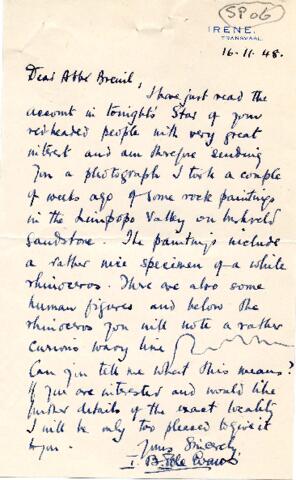 SP06
IRENE.
TRANSVAAL.
16.11.48.
Dear Abbé Breuil,
I have just read the
account in tonight's Star of your
redheaded people with very great
interest and am therefore sending
you a photograph I took a couple
of weeks ago of some rock paintings
in the Limpopo Valley on Bushveld
Sandstone. The paintings include
a rather nice specimen of a white
rhinoceros. There are also some
human figures and below the
rhinoceros you will note a rather
curious wavy line
Can you tell me what this means?
If you are interested and would like
further details of the exact locality
I will be only too pleased to give it
to you.
Yours Sincerely,
I. B. Pole Evans